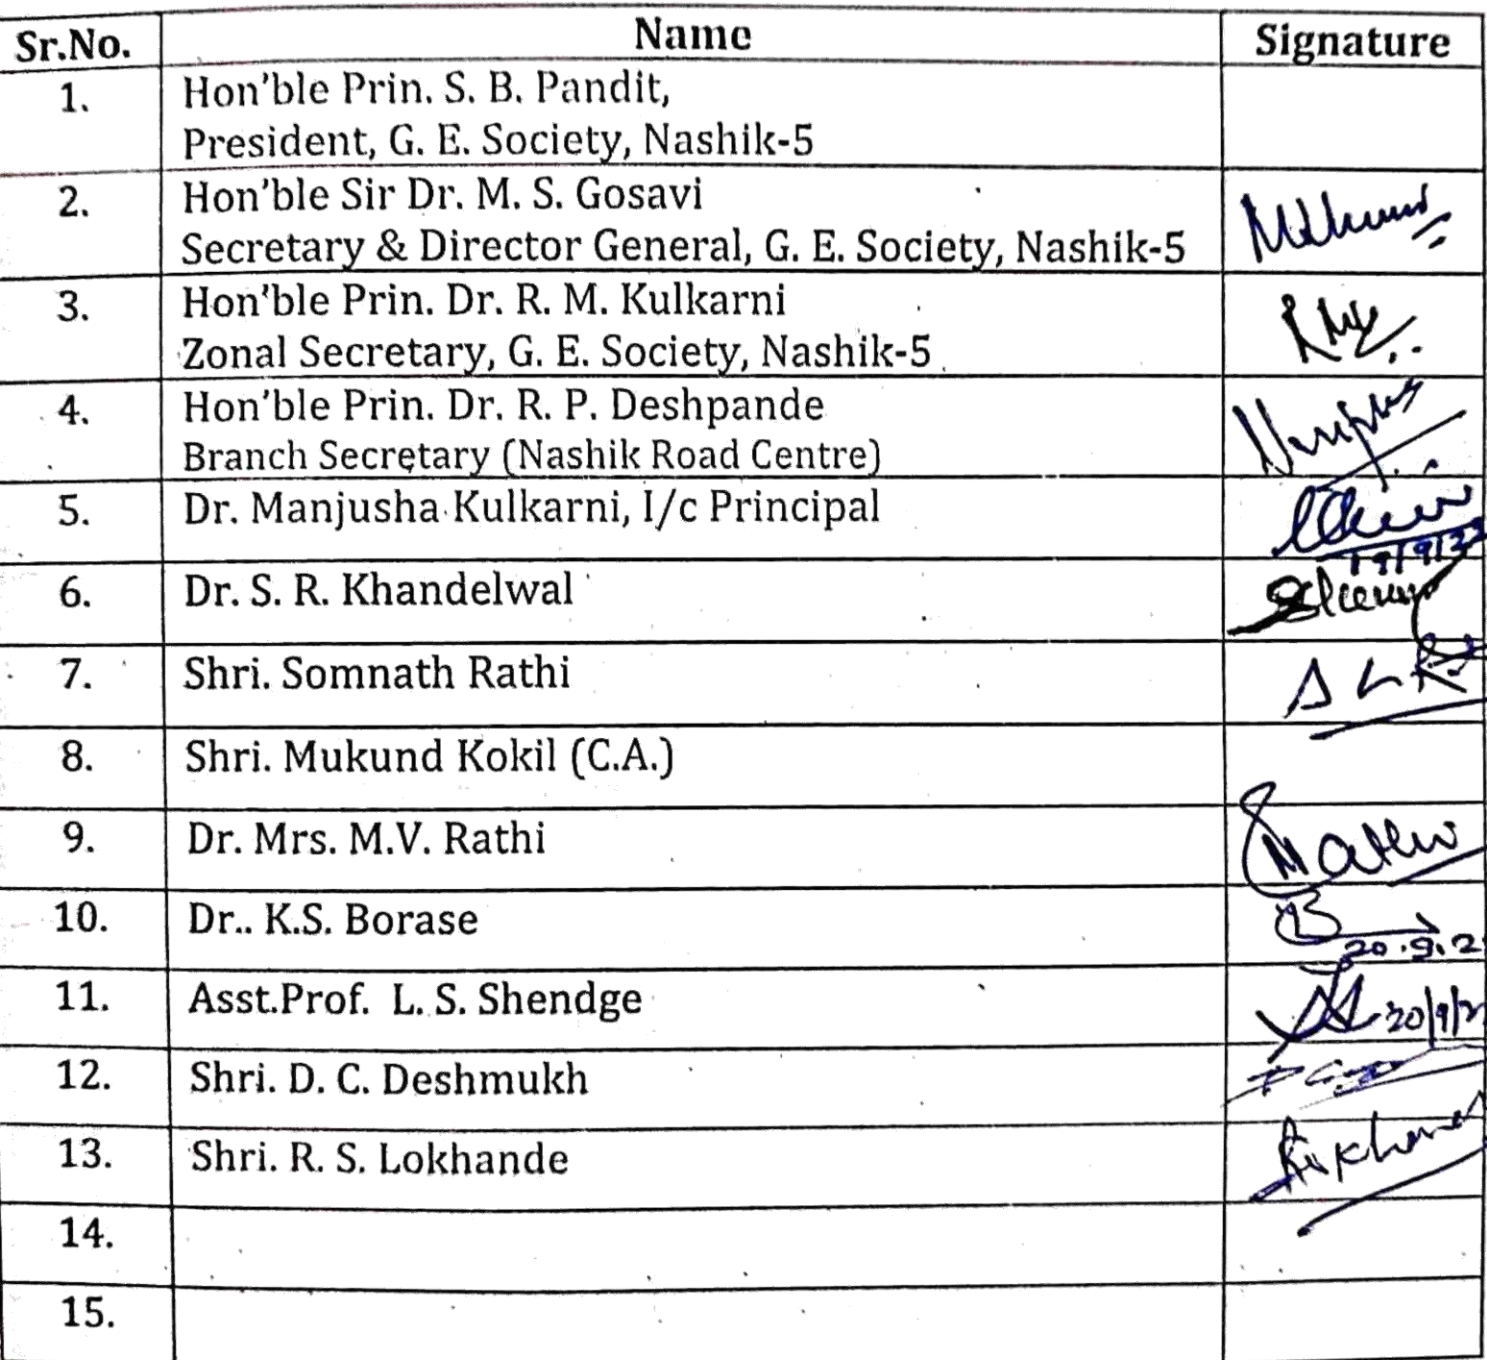 Sr.No. Name Signature
1. Hon'ble Prin. S. B. Pandit,
President, G. E. Society, Nashik-5
2. Hon'ble Sir Dr. M. S. Gosavi
Secretary & Director General, G. E. Society, Nashik-5
3. Hon'ble Prin. Dr. R. M. Kulkarni
Zonal Secretary, G. E. Society, Nashik-5
4. Hon'ble Prin. Dr. R. P. Deshpande
Branch Secretary (Nashik Road Centre)
5. Dr. Manjusha Kulkarni, I/c Principal
6. Dr. S. R. Khandelwal
7. Shri. Somnath Rathi
8. Shri. Mukund Kokil (C.A.)
9. Dr. Mrs. M.V. Rathi
10. Dr.. K.S. Borase
20.9.2
11. Asst.Prof. L. S. Shendge 20/9/2
12. Shri. D. C. Deshmukh
13. Shri. R. S. Lokhande
14.
15.